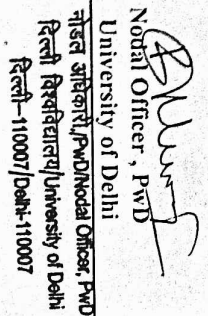 Nodal Officer , PwD
University of Delhi
नोडल अधिकारी,PwD/Nodal Officer, PwD
दिल्ली विश्वविद्यालय/University of Delhi
दिल्ली-110007/Delhi-110007